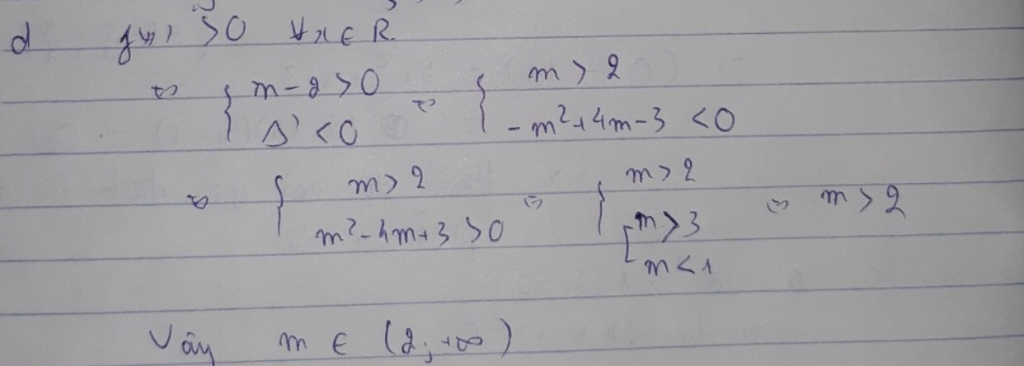 d f(x) > 0 ∀x ∈ R.
⇔ { m - 2 > 0 ; Δ' < 0 ⇔ { m > 2 ; -m² + 4m - 3 < 0
⇔ { m > 2 ; m² - 4m + 3 > 0 ⇔ { m > 2 ; [ m > 3 ; m < 1 ⇔ m > 2
Vậy m ∈ (2; +∞)